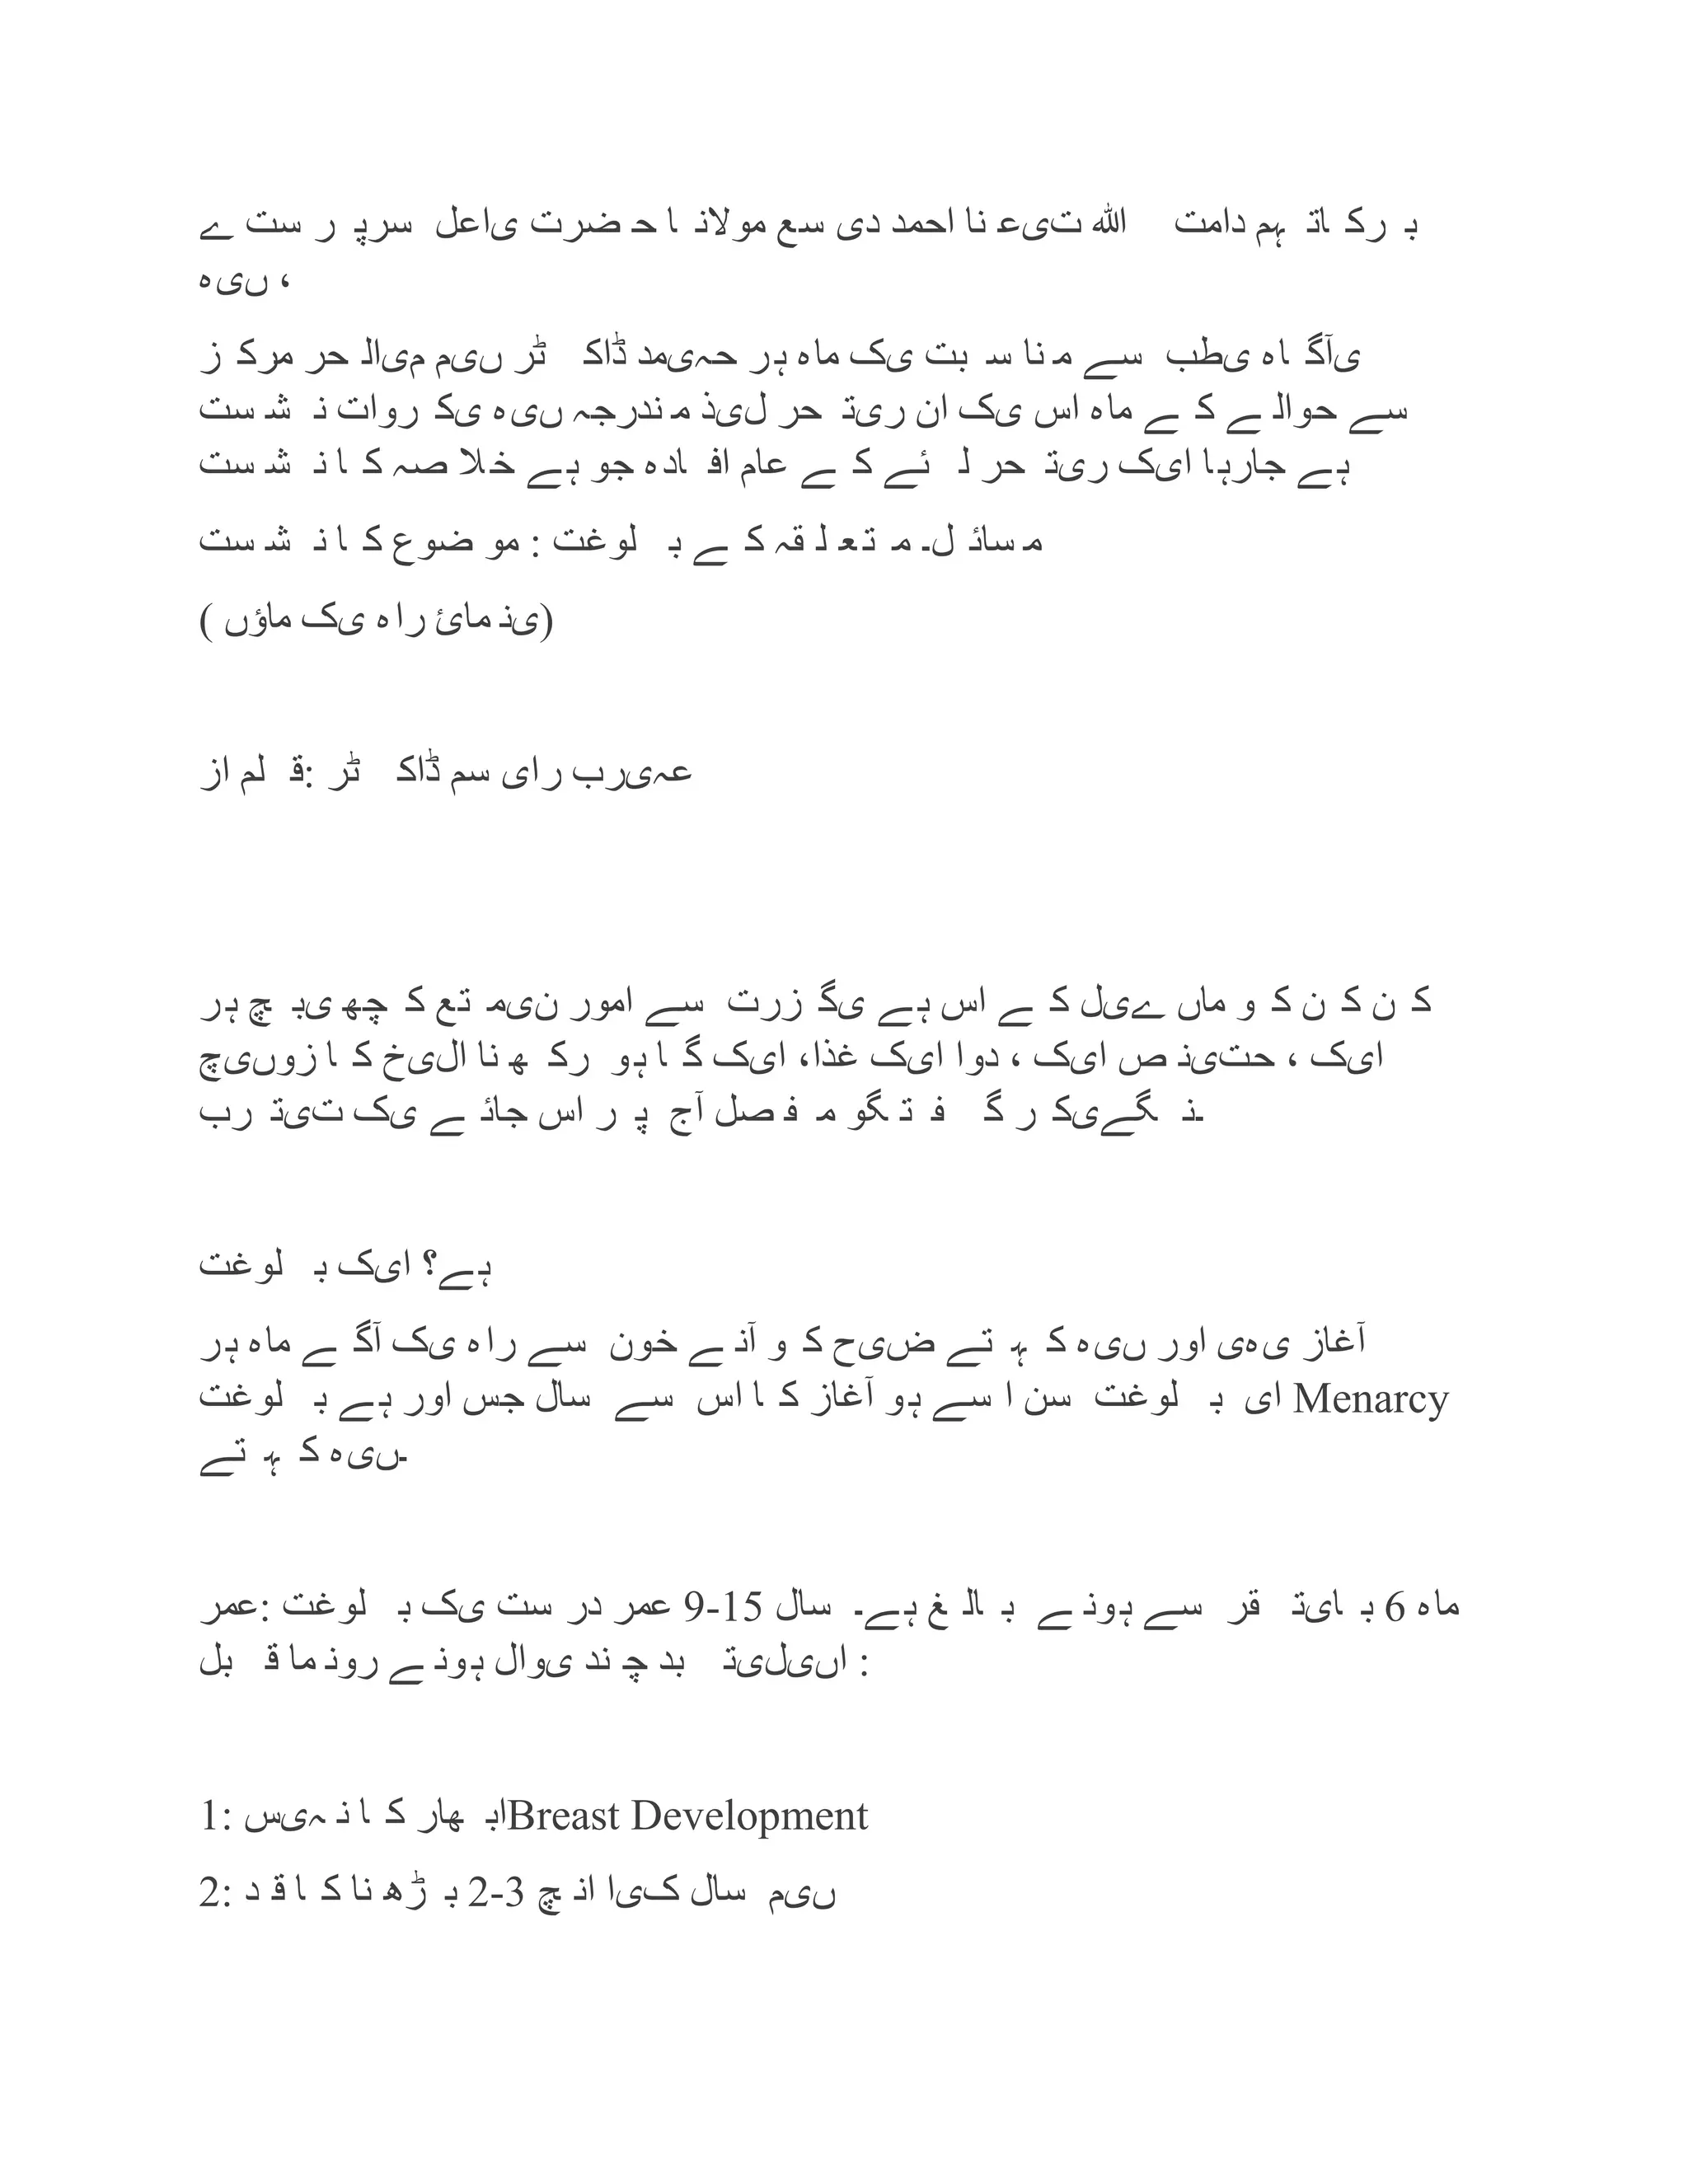 سرپرست اعلی حضرت مولانا سعید احمد عنایت الله دامت برکاتہم
ہیں ،
مرکز الحریم میں ڈاکٹر مدیحہ ہر ماہ کی مناسبت سے طبی آگاہی
نشست کرواتی ہیں مندرجہ ذیل تحریر ان کی اس ماہ کے حوالے سے
نشست کا خلاصہ ہے جو افادہ عام کے لئے تحریر کیا جارہا ہے
نشست کا موضوع : بلوغت کے متعلقہ مسائل۔
( ماؤں کی راہ نمائی)
از قلم: ڈاکٹر سمیرا ربیعہ
ہر بچی کچھ متعین امور سے گزرتی ہے اس کے لیے ماں کو کن کن
چیزوں کا خیال رکھنا ہو گا کیا غذا، کیا دوا ، کیا نصیحت ، کیا
تربیت کی جائے اس پر آج مفصل گفتگو کر ینگے۔
بلوغت کیا ہے؟
ہر ماہ آگے کی راہ سے خون آنے کو حیض کہتے ہیں اور یہی آغاز
بلوغت ہے اور جس سال سے اس کا آغاز ہو اسے سن بلوغت یا Menarcy
کہتے ہیں۔
عمر: بلوغت کی درست عمر 9-15 سال ہے۔ بالغ ہونے سے تقریبا 6 ماہ
قبل رونما ہونے والی چند تبدیلیاں :
1: سینہ کا ابھارBreast Development
2: قد کا بڑھنا 2-3 انچ ایک سال میں